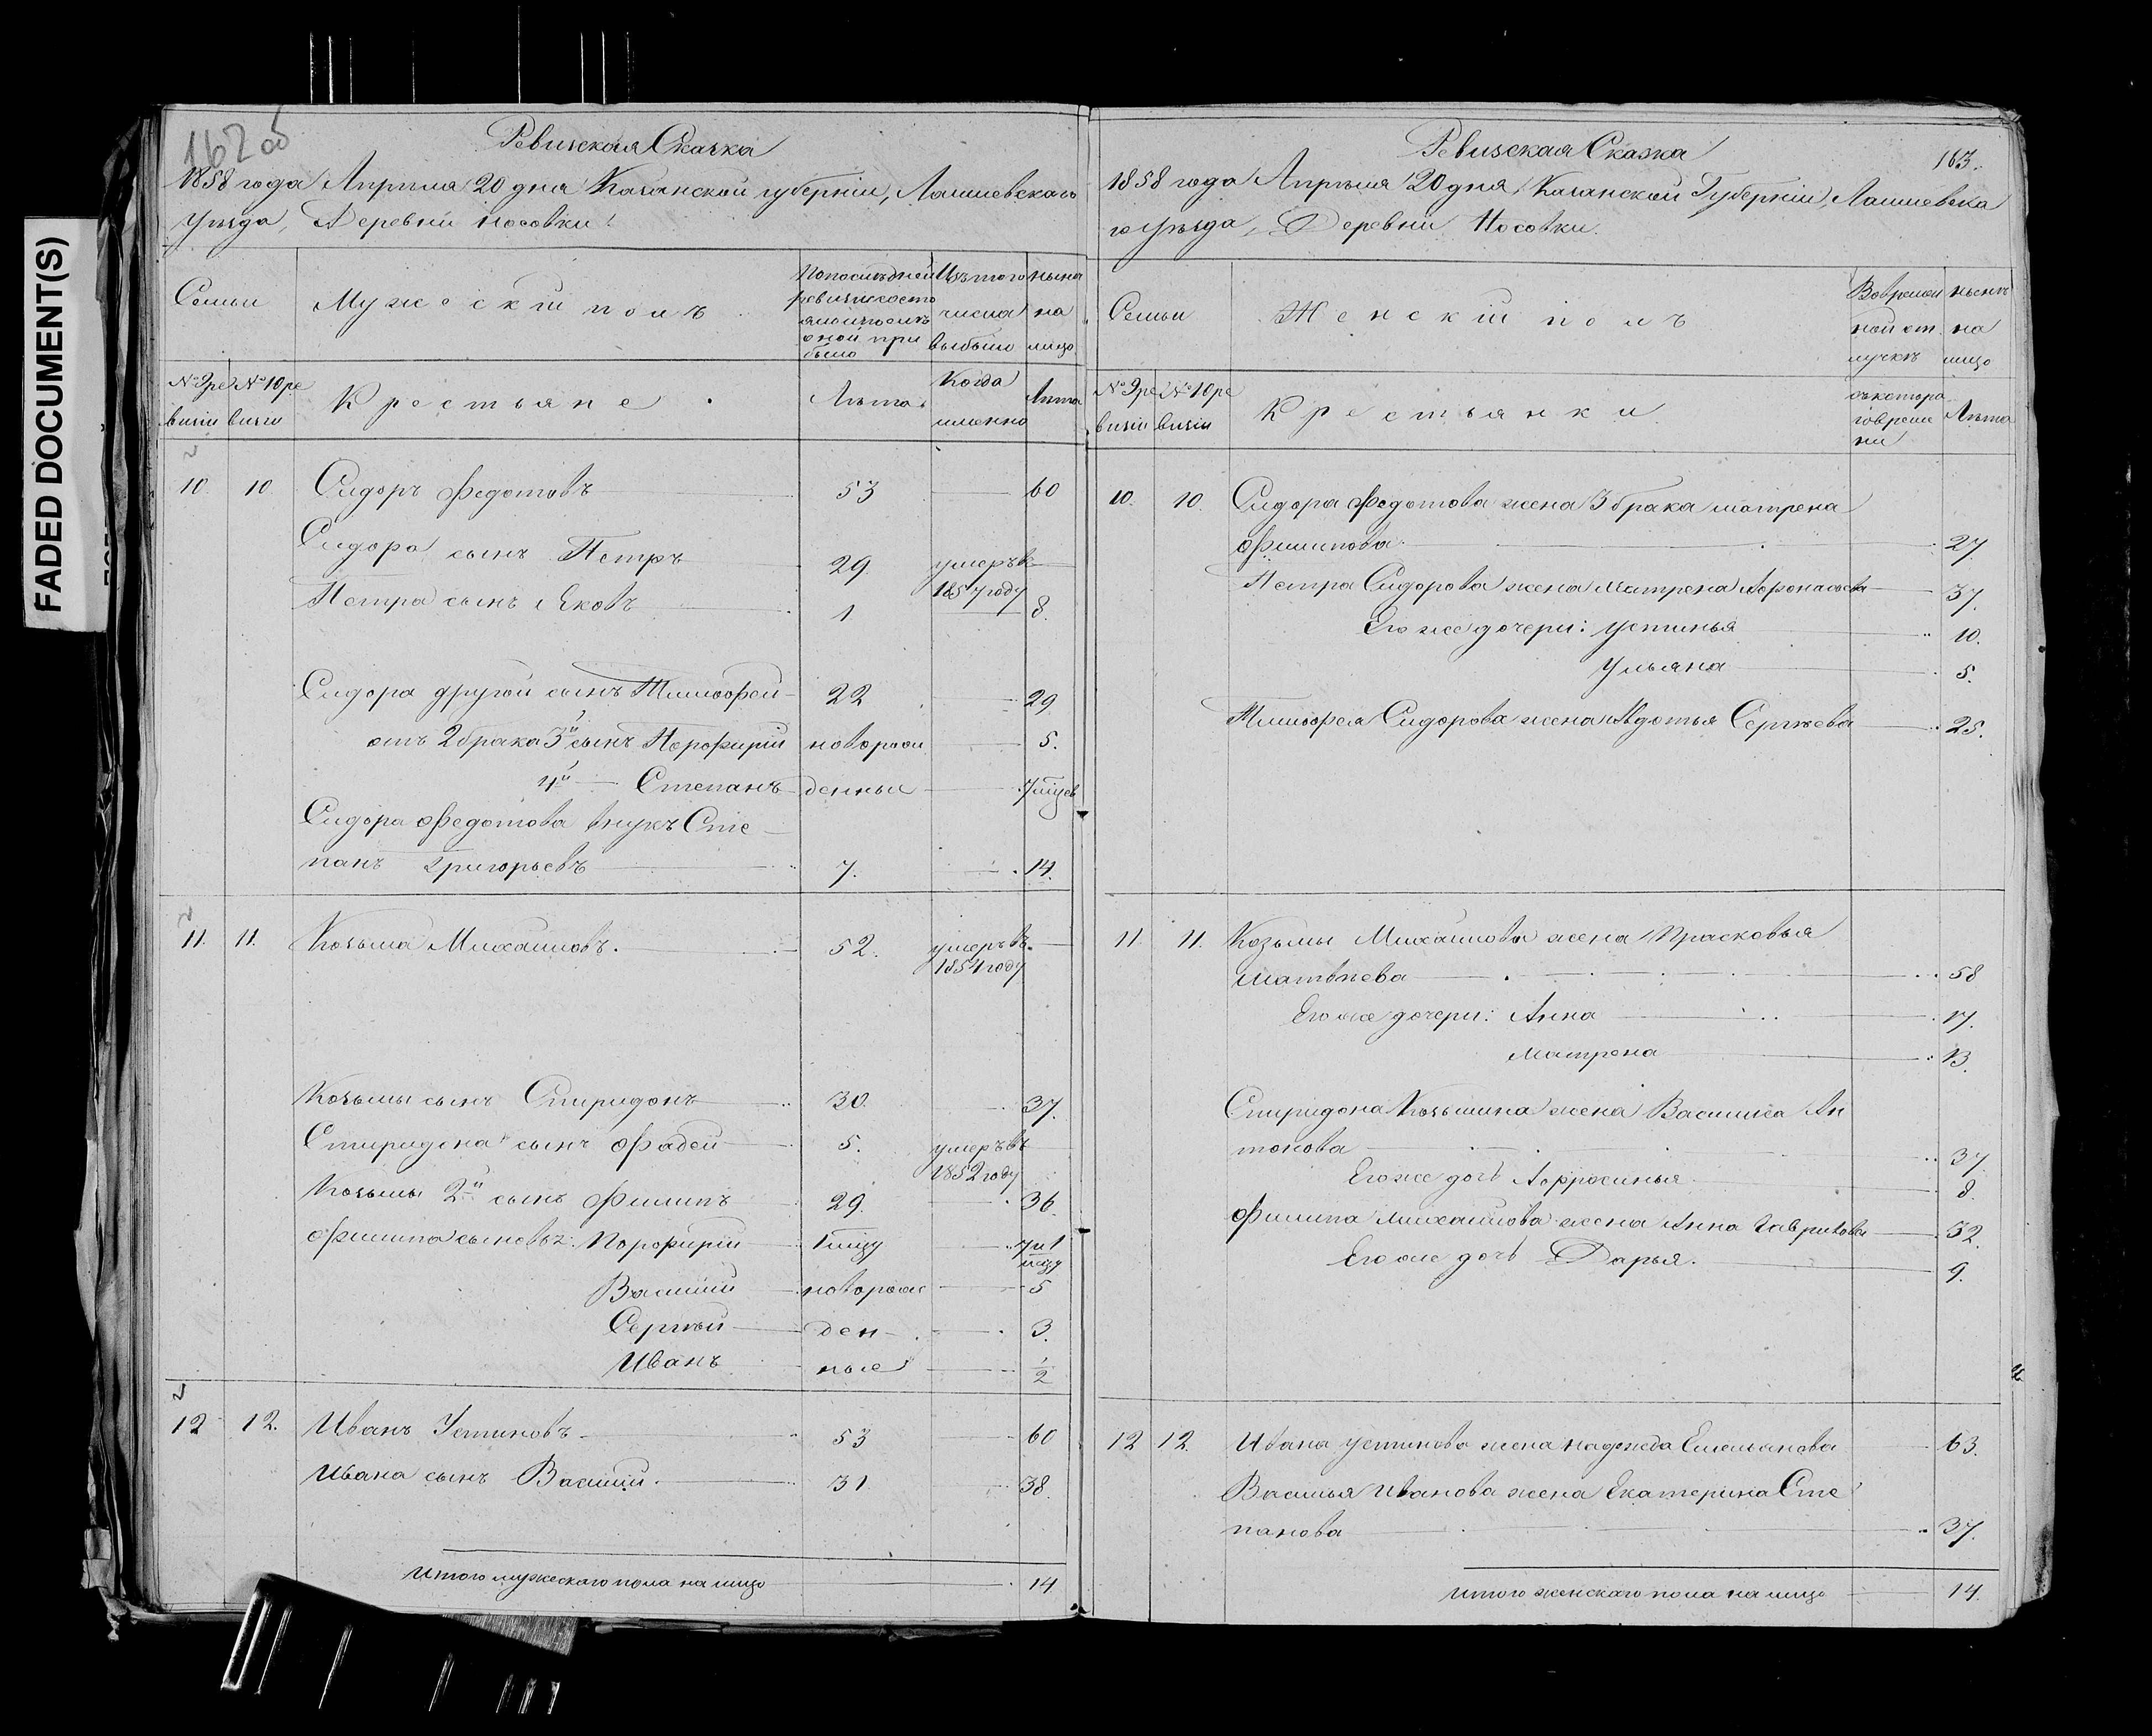 FADED DOCUMENT(S)
162 об
Ревизская Сказка
1858 года Апрѣля 20 дня Казанской губерніи, Лаишевскаго
уѣзда, Деревни Носовки.
Семьи
Мужескій полъ
По последней ревизіи состояло и после оной прибыло
Изъ того числа выбыло
Ныне на лицо
№ 9 ревизіи
№ 10 ревизіи
Крестьяне
Лѣта
Когда именно
Лѣта
10. 10 Сидоръ Федотовъ 53 60
Сидора сынъ Петръ 29. умеръ въ 1857 году
Петра сынъ Яковъ 1 8.
Сидора другой сынъ Тимофей 22 29.
отъ 2 брака 3й сынъ Порфирій новорож 5.
4й Степанъ денные 7 мѣсяц
Сидора Федотова внукъ Сте
панъ Григорьевъ 7. 14.
11. 11. Козьма Михайловъ. 52. умеръ въ 1854 году
Козьмы сынъ Спиридонъ 30. 37.
Спиридона сынъ Фадей 5. умеръ въ 1852 году
Козьмы 2й сынъ Филипъ 29. 36.
Филипа сыновья: Порфирій 1 мѣсяцу 7 и 1 мѣсяц
Василій новорож 5
Сергѣй ден 3.
Иванъ ные 1/2
12 12. Иванъ Устиновъ 53 60
Ивана сынъ Василій. 31 38.
Итого мужескаго пола на лицо 14
Ревизская Сказка
163.
1858 года Апрѣля 20 дня, Казанской Губерніи, Лаишевска
го уѣзда, Деревни Носовки.
Семьи
Женскій полъ
Во времен
ной от
лучкѣ
Нынѣ
на
лицо
№ 9 ре
визіи
№ 10 ре
визіи
Крестьянки
съ котора
го време
ни
Лѣта
10. 10. Сидора Федотова жена 3 брака Матрена
Филипова 27.
Петра Сидорова жена Матрена Афонасьева 37.
Его же дочери: Устинья 10.
Ульяна 5.
Тимофея Сидорова жена Авдотья Сергѣева 25.
11. 11. Козьмы Михайлова жена Прасковья
Матвѣева 58
Его же дочери: Анна 17.
Матрена 13.
Спиридона Козьмина жена Василиса Ан
тонова 37
Его же дочь Афросинья 8.
Филипа Михайлова жена Анна Гаврилова 32.
Его же дочь Дарья. 9.
12 12. Ивана Устинова жена Надежда Емельянова 63.
Василья Иванова жена Екатерина Сте
панова 37.
Итого женскаго пола на лицо 14.